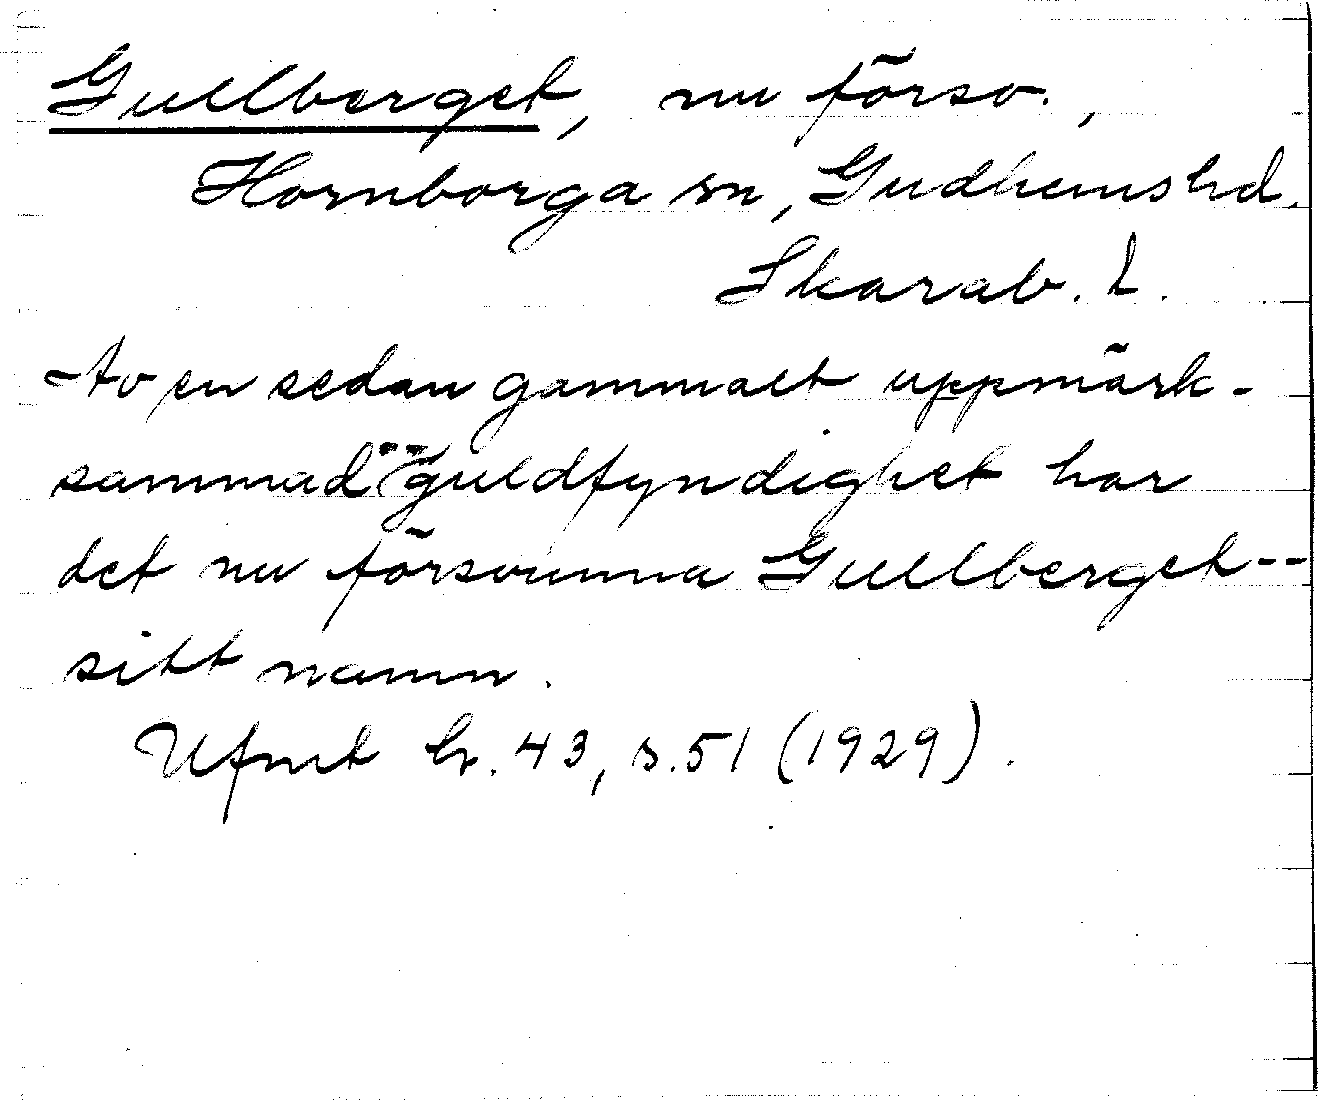 Gullberget, nu försv.,
Hornborga sn, Gudhems hd.
Skarab. l.
Av en sedan gammalt uppmärk-
sammad guldfyndighet har
det nu försvunna Gullberget --
sitt namn.
Ufmt h. 43, s. 51 (1929).